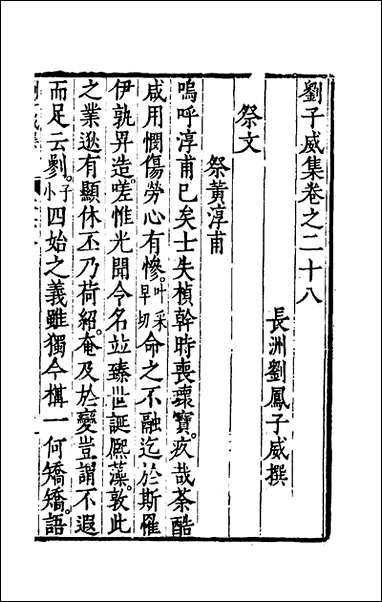 劉子威集卷之二十八
長洲劉鳳子威撰
祭文
祭黃淳甫
嗚呼淳甫已矣士失楨幹時喪瓌寶疚哉荼酷
咸用憫傷勞心有慘叶采早切命之不融迄於斯罹
伊孰畀造嗟惟光聞令名竝臻世誕熙藻敦此
之業逖有顯休丕乃荷紹奄及於變豈謂不遐
而足云劉子小四始之義雖獨今構一何矯矯語